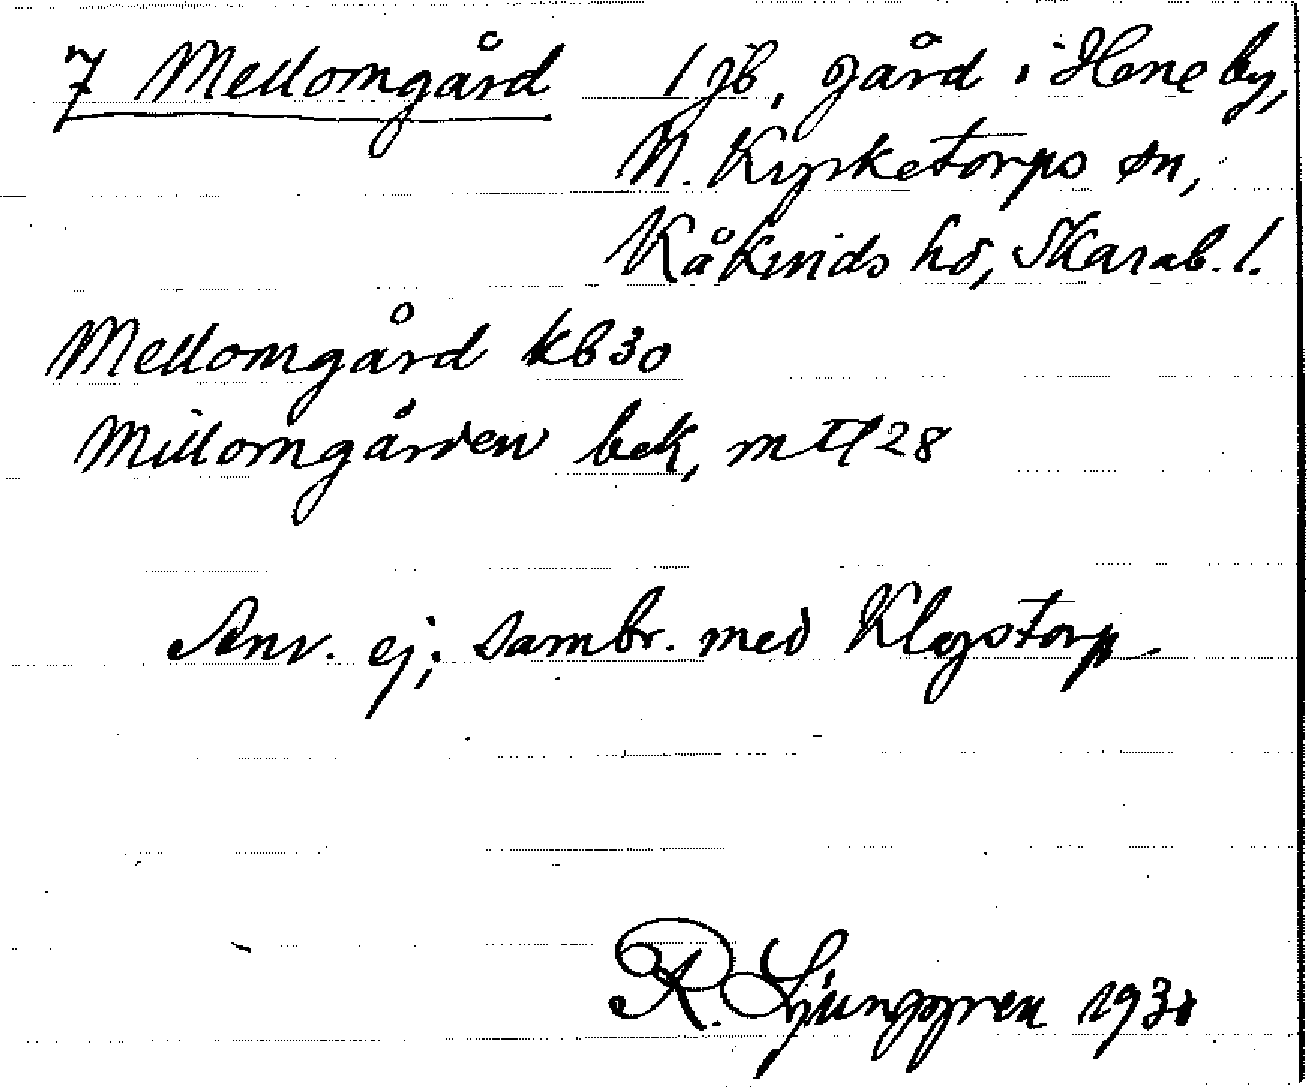 7 Mellomgård 1 jb, gård i Hene by,
N. Kyrketorps sn,
Kåkinds hd, Skarab. l.
Mellomgård kb30
Millomgården bek, mtl 28
Anv. ej; sambr. med Klostorp
R. Ljunggren 1930